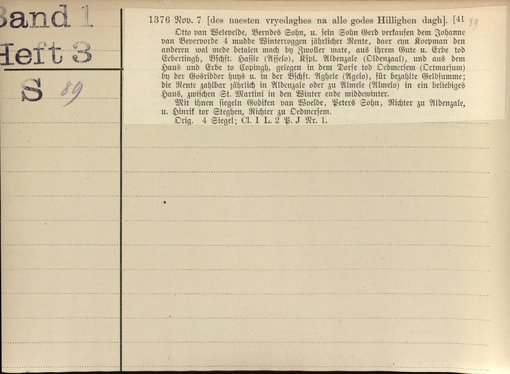 Band 1
Heft 3
S 89
1376 Nov. 7 [des naesten vryedaghes na alle godes Hillighen dagh]. [41
89
Otto van Wetevelde, Berndes Sohn, u. sein Sohn Gerd verkaufen dem Johanne
van Bevervorde 4 mudde Winterroggen jährlicher Rente, daer eyn Koepman den
anderen wal mede betalen mach by Zwoller mate, aus ihrem Gute u. Erbe tod
Erbertingh, Bschft. Hassle (Asselo), Kspl. Aldenzale (Oldenzaal), und aus dem
Haus und Erbe to Copingh, gelegen in dem Dorfe tod Oedmersem (Oetmarsum)
by der Gosridder huys u. in der Bschft. Aghele (Agelo), für bezahlte Geldsumme;
die Rente zahlbar jährlich in Aldenzale oder zu Almele (Almelo) in ein beliebiges
Haus, zwischen St. Martini in den Winter ende middewinter.
Mit ihnen siegeln Godiken van Woelde, Peters Sohn, Richter zu Aldenzale,
u. Hinrik tor Steghen, Richter zu Oedmersem.
Orig. 4 Siegel; Cl. I L. 2 P. J Nr. 1.